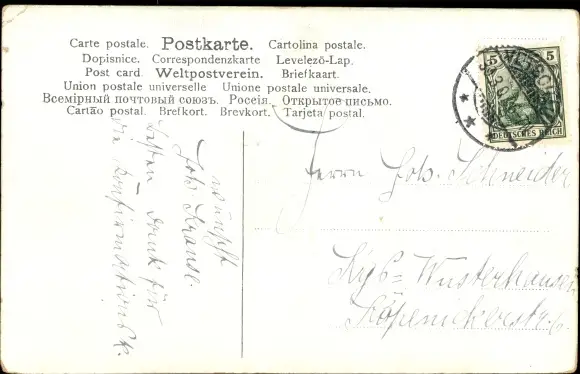 Carte postale. Postkarte. Cartolina postale.
Dopisnice. Correspondenzkarte Levelező-Lap.
Post card. Weltpostverein. Briefkaart.
Union postale universelle Unione postale universale.
Всемірный почтовый союзъ. Россія. Открытое письмо.
Cartão postal. Brefkort. Brevkort. Tarjeta postal.
5 5
DEUTSCHES REICH
Herrn Joh. Schneider
Kgs= Wusterhausen
Köpenickerstr.
wünscht
Joh. Krause.
Besten Dank für
die Konfirmations k.